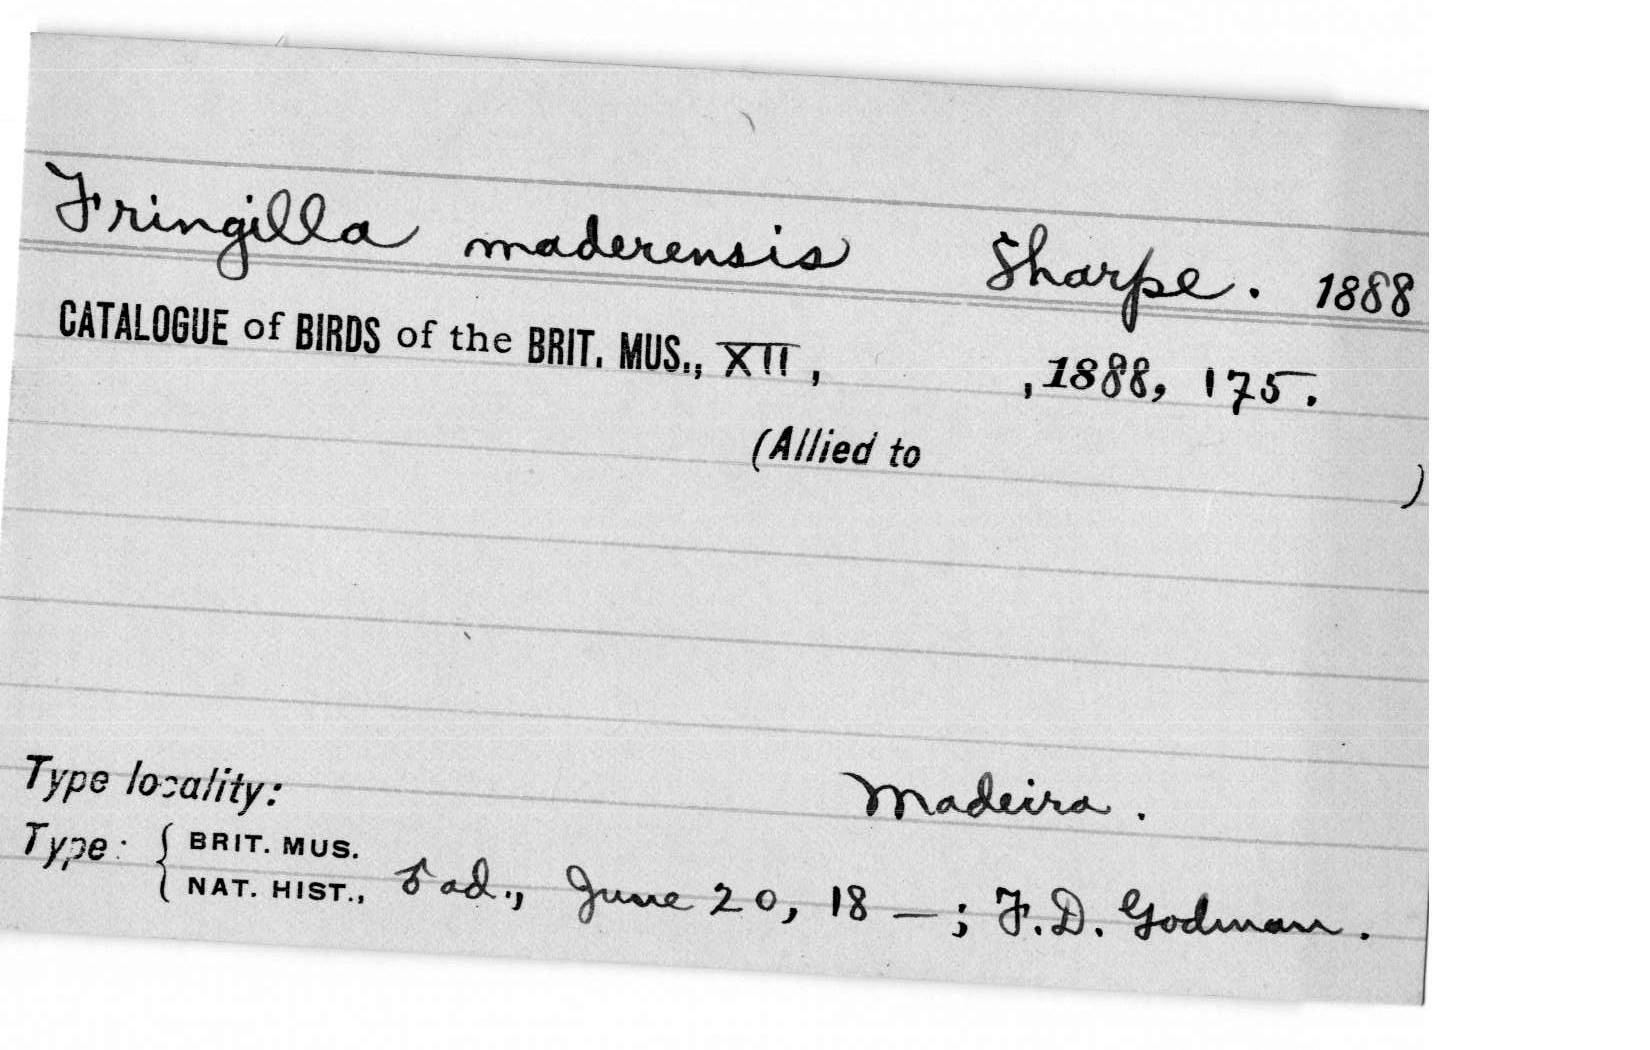 Fringilla maderensis Sharpe. 1888
CATALOGUE of BIRDS of the BRIT. MUS., XII, , 1888, 175.
(Allied to )
Type locality: Madeira.
Type: { BRIT. MUS.
NAT. HIST., ♂ ad., June 20, 18—; F.D. Godman.